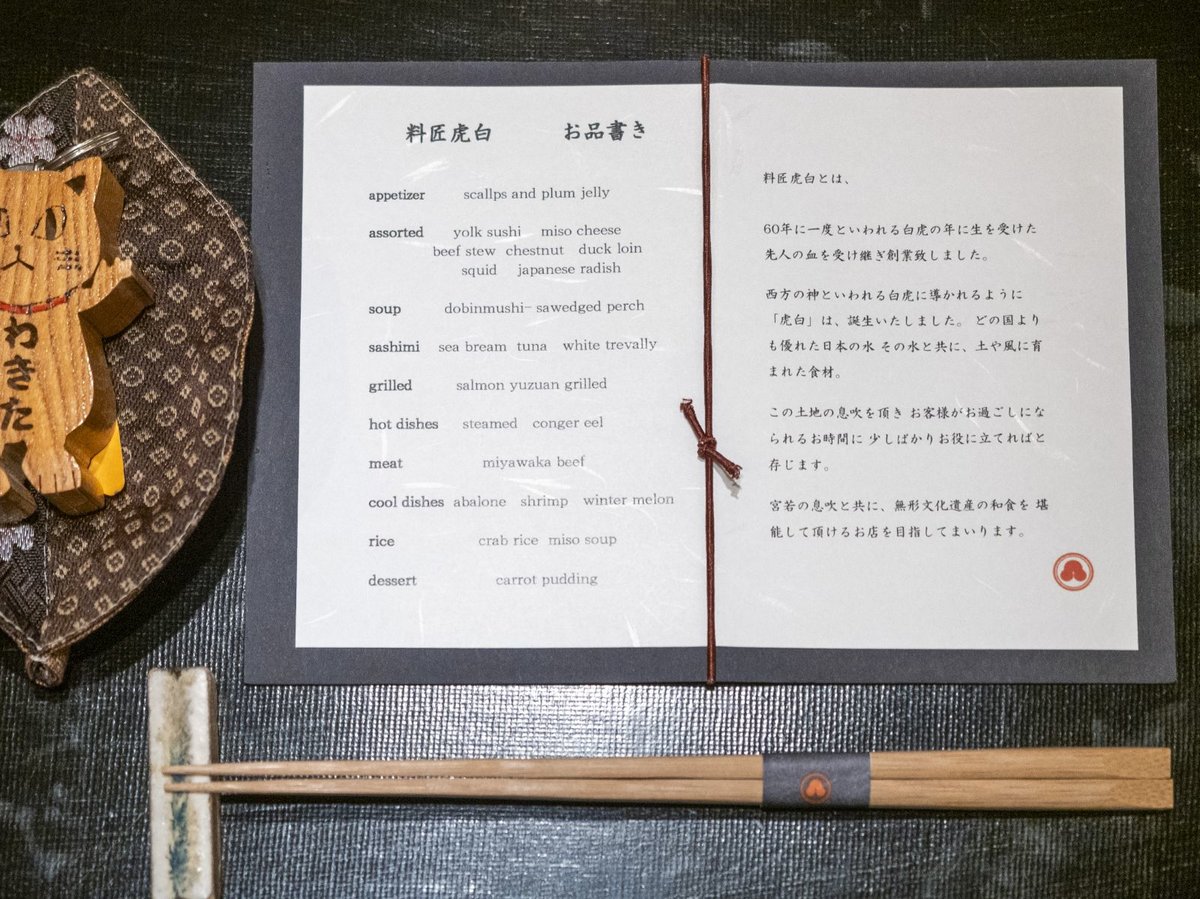 わきた
料匠虎白 お品書き
appetizer scallps and plum jelly
assorted yolk sushi miso cheese
beef stew chestnut duck loin
squid japanese radish
soup dobinmushi- sawedged perch
sashimi sea bream tuna white trevally
grilled salmon yuzuan grilled
hot dishes steamed conger eel
meat miyawaka beef
cool dishes abalone shrimp winter melon
rice crab rice miso soup
dessert carrot pudding
料匠虎白とは、
60年に一度といわれる白虎の年に生を受けた
先人の血を受け継ぎ創業致しました。
西方の神といわれる白虎に導かれるように
「虎白」は、誕生いたしました。 どの国より
も優れた日本の水 その水と共に、土や風に育
まれた食材。
この土地の息吹を頂き お客様がお過ごしにな
られるお時間に 少しばかりお役に立てればと
存じます。
宮若の息吹と共に、無形文化遺産の和食を 堪
能して頂けるお店を目指してまいります。